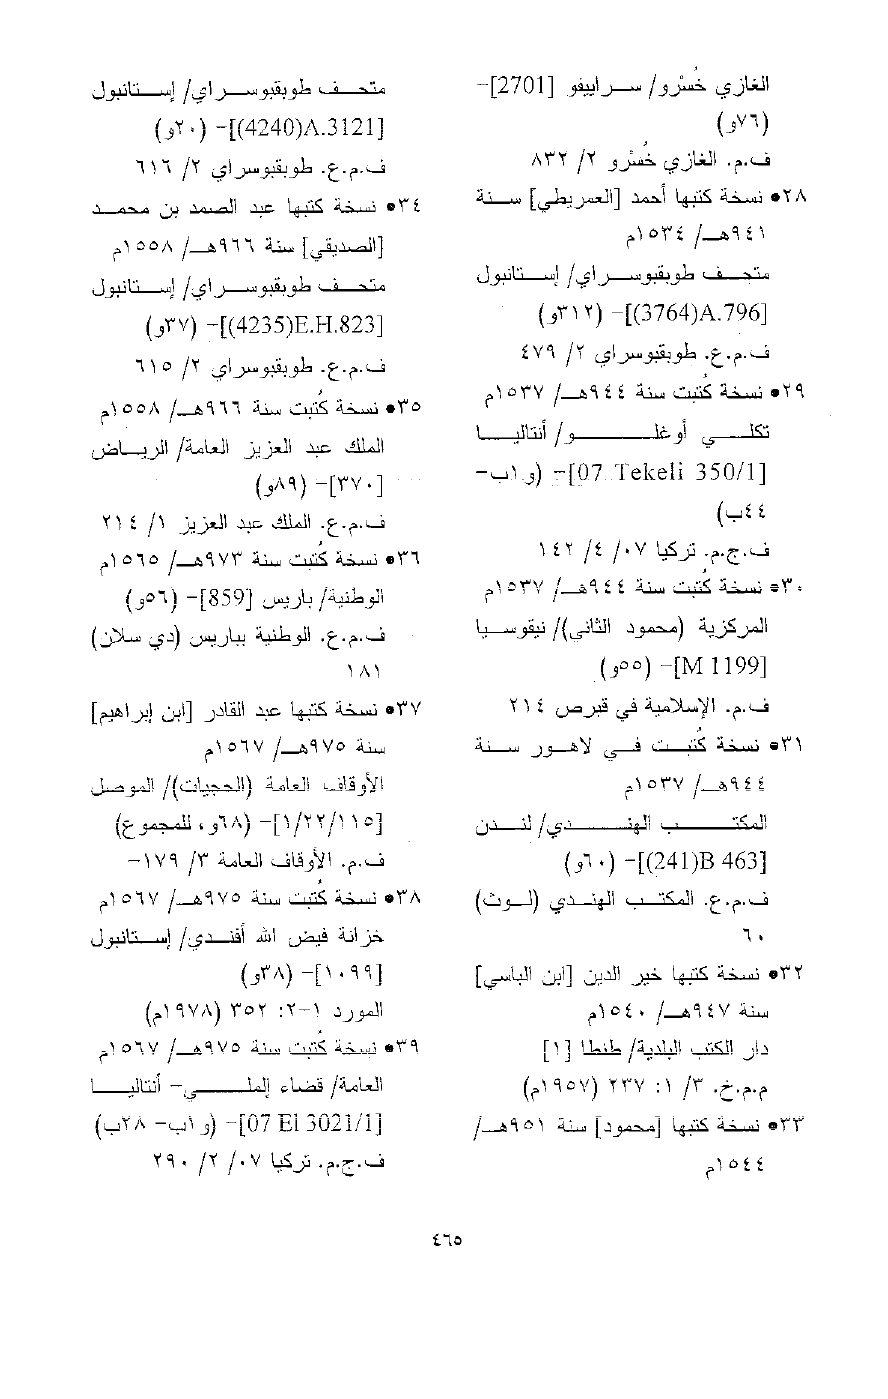 الغازي خُسْرو/ سراييفو [2701]-
(٧٦و)
ف.م. الغازي خُسْرو ٢/ ٨٣٢
٢٨• نسخة كتبها أحمد [العمريطي] سنة
٩٤١هـ/ ١٥٣٤م
متحف طوبقبوسراي/ إستانبول
[A.796(3764)]- (٣١٢و)
ف.م.ع. طوبقبوسراي ٢/ ٤٧٩
٢٩• نسخة كُتبت سنة ٩٤٤هـ/ ١٥٣٧م
تكلي أوغلو/ أنتاليا
[07 Tekeli 350/1]- (و١ب-
٤٤ب)
ف.ج.م. تركيا ٠٧/ ٤/ ١٤٢
٣٠• نسخة كُتبت سنة ٩٤٤هـ/ ١٥٣٧م
المركزية (محمود الثاني)/ نيقوسيا
[M 1199]- (٥٥و)
ف.م. الإسلامية في قبرص ٢١٤
٣١• نسخة كُتبت في لاهور سنة
٩٤٤هـ/ ١٥٣٧م
المكتب الهندي/ لندن
[B 463(241)]- (٦٠و)
ف.م.ع. المكتب الهندي (لوث)
٦٠
٣٢• نسخة كتبها خير الدين [ابن الباسي]
سنة ٩٤٧هـ/ ١٥٤٠م
دار الكتب البلدية/ طنطا [١]
م.م.خ. ٣/ ١: ٢٣٧ (١٩٥٧م)
٣٣• نسخة كتبها [محمود] سنة ٩٥١هـ/
١٥٤٤م
متحف طوبقبوسراي/ إستانبول
[A.3121(4240)]- (٢٠و)
ف.م.ع. طوبقبوسراي ٢/ ٦١٦
٣٤• نسخة كتبها عبد الصمد بن محمد
[الصديقي] سنة ٩٦٦هـ/ ١٥٥٨م
متحف طوبقبوسراي/ إستانبول
[E.H.823(4235)]- (٣٧و)
ف.م.ع. طوبقبوسراي ٢/ ٦١٥
٣٥• نسخة كُتبت سنة ٩٦٦هـ/ ١٥٥٨م
الملك عبد العزيز العامة/ الرياض
[٣٧٠]- (٨٩و)
ف.م.ع. الملك عبد العزيز ١/ ٢١٤
٣٦• نسخة كُتبت سنة ٩٧٣هـ/ ١٥٦٥م
الوطنية/ باريس [859]- (٥٦و)
ف.م.ع. الوطنية بباريس (دي سلان)
١٨١
٣٧• نسخة كتبها عبد القادر [ابن إبراهيم]
سنة ٩٧٥هـ/ ١٥٦٧م
الأوقاف العامة (الحجيات)/ الموصل
[١/٢٢/١١٥]- (٦٨و، للمجموع)
ف.م. الأوقاف العامة ٣/ ١٧٩-
٣٨• نسخة كُتبت سنة ٩٧٥هـ/ ١٥٦٧م
خزانة فيض الله أفندي/ إستانبول
[١٠٩٩]- (٣٨و)
المورد ١-٢: ٣٥٢ (١٩٧٨م)
٣٩• نسخة كُتبت سنة ٩٧٥هـ/ ١٥٦٧م
العامة/ قضاء إلملي- أنتاليا
[07 El 3021/1]- (و١ب- ٢٨ب)
ف.ج.م. تركيا ٠٧/ ٢/ ٢٩٠
٤٦٥